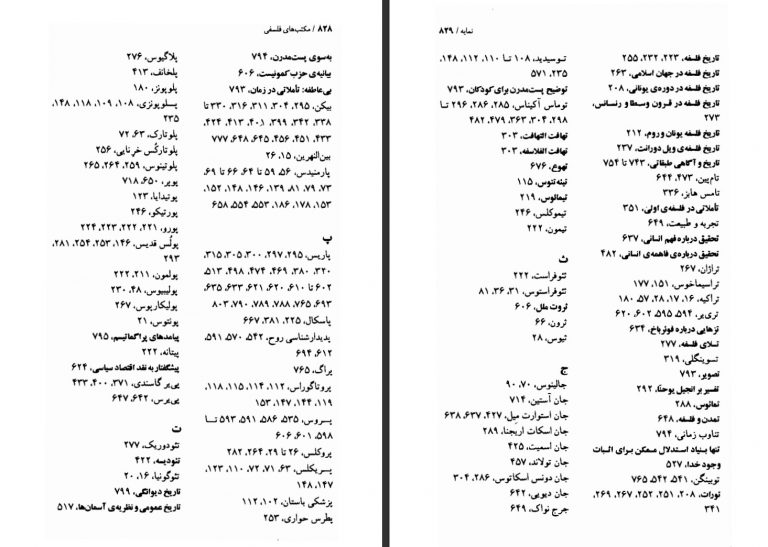 ۸۲۸ / مکتب‌های فلسفی
به‌سوی پست‌مدرن، ۷۹۴
بیانیه‌ی حزب کمونیست، ۶۰۶
بی‌عاطفه: تأملاتی در زمان، ۷۹۳
بیکن، ۲۹۵، ۳۰۴، ۳۱۱، ۳۱۶، ۳۳۰ تا
۳۳۸، ۳۴۲، ۳۹۹، ۴۰۱، ۴۱۳، ۴۲۴،
۴۳۳، ۴۵۱، ۴۵۶، ۶۴۵، ۶۴۸، ۷۷۷
بین‌النهرین، ۱۵، ۲۶
پارمنیدس، ۵۶، ۵۹ تا ۶۴، ۶۶ تا ۶۹،
۷۳، ۷۹، ۸۱، ۱۳۹، ۱۴۶، ۱۴۸، ۱۵۲،
۱۵۳، ۱۷۸، ۱۸۶، ۵۵۳، ۵۵۴، ۶۵۸
پ
پاریس، ۲۹۵، ۲۹۷، ۳۰۰، ۳۰۵، ۳۱۵،
۳۲۰، ۳۸۰، ۴۶۹، ۴۷۴، ۴۹۸، ۵۱۳،
۶۰۲ تا ۶۱۰، ۶۲۰، ۶۲۱، ۶۳۳، ۶۳۵،
۶۹۳، ۷۶۵، ۷۸۸، ۷۸۹، ۷۹۰، ۸۰۳
پاسکال، ۲۲۵، ۳۸۱، ۶۶۷
پدیدارشناسی روح، ۵۴۲، ۵۷۰، ۵۹۱،
۶۱۲، ۶۹۴
پراگ، ۷۶۵
پروتاگوراس، ۱۱۲، ۱۱۴، ۱۱۵، ۱۱۸،
۱۱۹، ۱۴۴، ۱۴۷، ۱۵۳
پیروس، ۵۳۵، ۵۸۶، ۵۹۱، ۵۹۳ تا
۵۹۸، ۶۰۱، ۶۰۶
پروکلس، ۲۶ تا ۲۹، ۲۶۴، ۲۸۲
پریکلس، ۶۳، ۷۱، ۷۲، ۱۱۰، ۱۲۳،
۱۴۷، ۱۴۸
پزشکی باستان، ۱۰۲، ۱۱۲
پطرس حواری، ۲۵۳
پلاگیوس، ۲۷۶
پلخانف، ۴۱۳
پلوپونز، ۱۸۰
پلوپونزی، ۱۰۸، ۱۰۹، ۱۱۸، ۱۴۸،
۲۳۵
پلوتارک، ۶۳، ۷۲
پلوتارکُس خرنایی، ۲۵۶
پلوتینوس، ۲۵۹، ۲۶۴، ۲۶۵
پوپر، ۶۵۰، ۷۱۸
پوتیدایا، ۱۲۳
پورتیکو، ۲۴۶
پورو، ۲۲۱، ۲۲۲، ۲۲۳، ۲۲۴
پولُس قدیس، ۱۴۶، ۲۵۳، ۲۵۴، ۲۸۱،
۲۹۳
پولمون، ۲۱۱، ۲۲۲
پولیبیوس، ۴۸، ۲۳۰
پولیکارپوس، ۲۶۷
پونتوس، ۲۱
پیامدهای پراگماتیسم، ۷۹۵
پیتانه، ۲۲۲
پیشگفتار به نقد اقتصاد سیاسی، ۶۲۴
پی‌یر گاسندی، ۳۷۱، ۴۰۰، ۴۳۳
پی‌یرس، ۶۴۲، ۶۴۷
ت
تئودوریک، ۲۷۷
تئودیسه، ۴۲۲
تئوگونیا، ۱۶، ۲۰
تاریخ دیوانگی، ۷۹۹
تاریخ عمومی و نظریه‌ی آسمان‌ها، ۵۱۷
نمایه / ۸۲۹
تاریخ فلسفه، ۲۲۳، ۲۳۲، ۲۵۵
تاریخ فلسفه در جهان اسلامی، ۲۶۳
تاریخ فلسفه در دوره‌ی یونانی، ۲۰۸
تاریخ فلسفه در قرون وسطا و رنسانس،
۲۷۳
تاریخ فلسفه یونان و روم، ۲۱۲
تاریخ فلسفه‌ی ویل دورانت، ۲۳۷
تاریخ و آگاهی طبقاتی، ۷۴۳ تا ۷۵۴
تام‌پین، ۴۷۳، ۶۴۴
تامس هابز، ۳۳۶
تأملاتی در فلسفه‌ی اولیٰ، ۳۵۱
تجربه و طبیعت، ۶۴۹
تحقیق درباره فهم انسانی، ۶۳۷
تحقیق درباره‌ی فاهمه‌ی انسانی، ۴۸۲
تراژان، ۲۶۷
تراسیماخوس، ۱۵۱، ۱۷۷
تراکیه، ۱۶، ۱۷، ۲۸، ۵۷، ۱۸۰
تری‌یر، ۵۹۴، ۵۹۵، ۶۰۲، ۶۲۰
تزهایی درباره فوئرباخ، ۶۳۴
تسلای فلسفه، ۲۷۷
تسوینگلی، ۳۱۹
تصویر، ۷۹۳
تفسیر بر انجیل یوحنّا، ۲۹۲
تمائوس، ۲۸۸
تمدن و فلسفه، ۶۴۸
تناوب زمانی، ۷۹۴
تنها بنیاد استدلال ممکن برای اثبات
وجود خدا، ۵۲۷
توبینگن، ۵۴۱، ۵۴۲، ۷۶۵
تورات، ۲۰۸، ۲۵۱، ۲۵۲، ۲۶۷، ۲۶۹،
۳۴۱
توسیدید، ۱۰۸ تا ۱۱۰، ۱۱۲، ۱۴۸،
۲۳۵، ۵۷۱
توضیح پست‌مدرن برای کودکان، ۷۹۳
توماس آکیناس، ۲۸۵، ۲۸۶، ۲۹۶ تا
۲۹۸، ۳۰۴، ۳۶۳، ۴۷۹، ۴۸۲
تهافت التهافت، ۳۰۳
تهافت الفلاسفه، ۳۰۳
تهوع، ۶۷۶
تیئه‌تتوس، ۱۱۵
تیمائوس، ۲۱۹
تیموکلس، ۲۴۶
تیمون، ۲۲۲
ث
تئوفراست، ۲۲۲
تئوفراستوس، ۳۱، ۳۶، ۸۱
ثروت ملل، ۶۰۶
ثرون، ۶۶
ثیوس، ۲۸
ج
جالینوس، ۷۰، ۹۰
جان آستین، ۷۱۴
جان استوارت میل، ۴۲۷، ۶۳۷، ۶۳۸
جان اسکات اریجنا، ۲۸۹
جان اسمیت، ۴۲۵
جان تولاند، ۴۵۷
جان دونس اسکاتوس، ۲۸۶، ۳۰۴
جان دیویی، ۶۴۲
جرج نواک، ۶۴۹